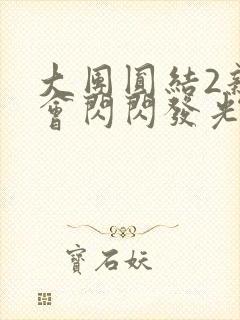 大團圓結2新
會閃閃發光
寶石妖